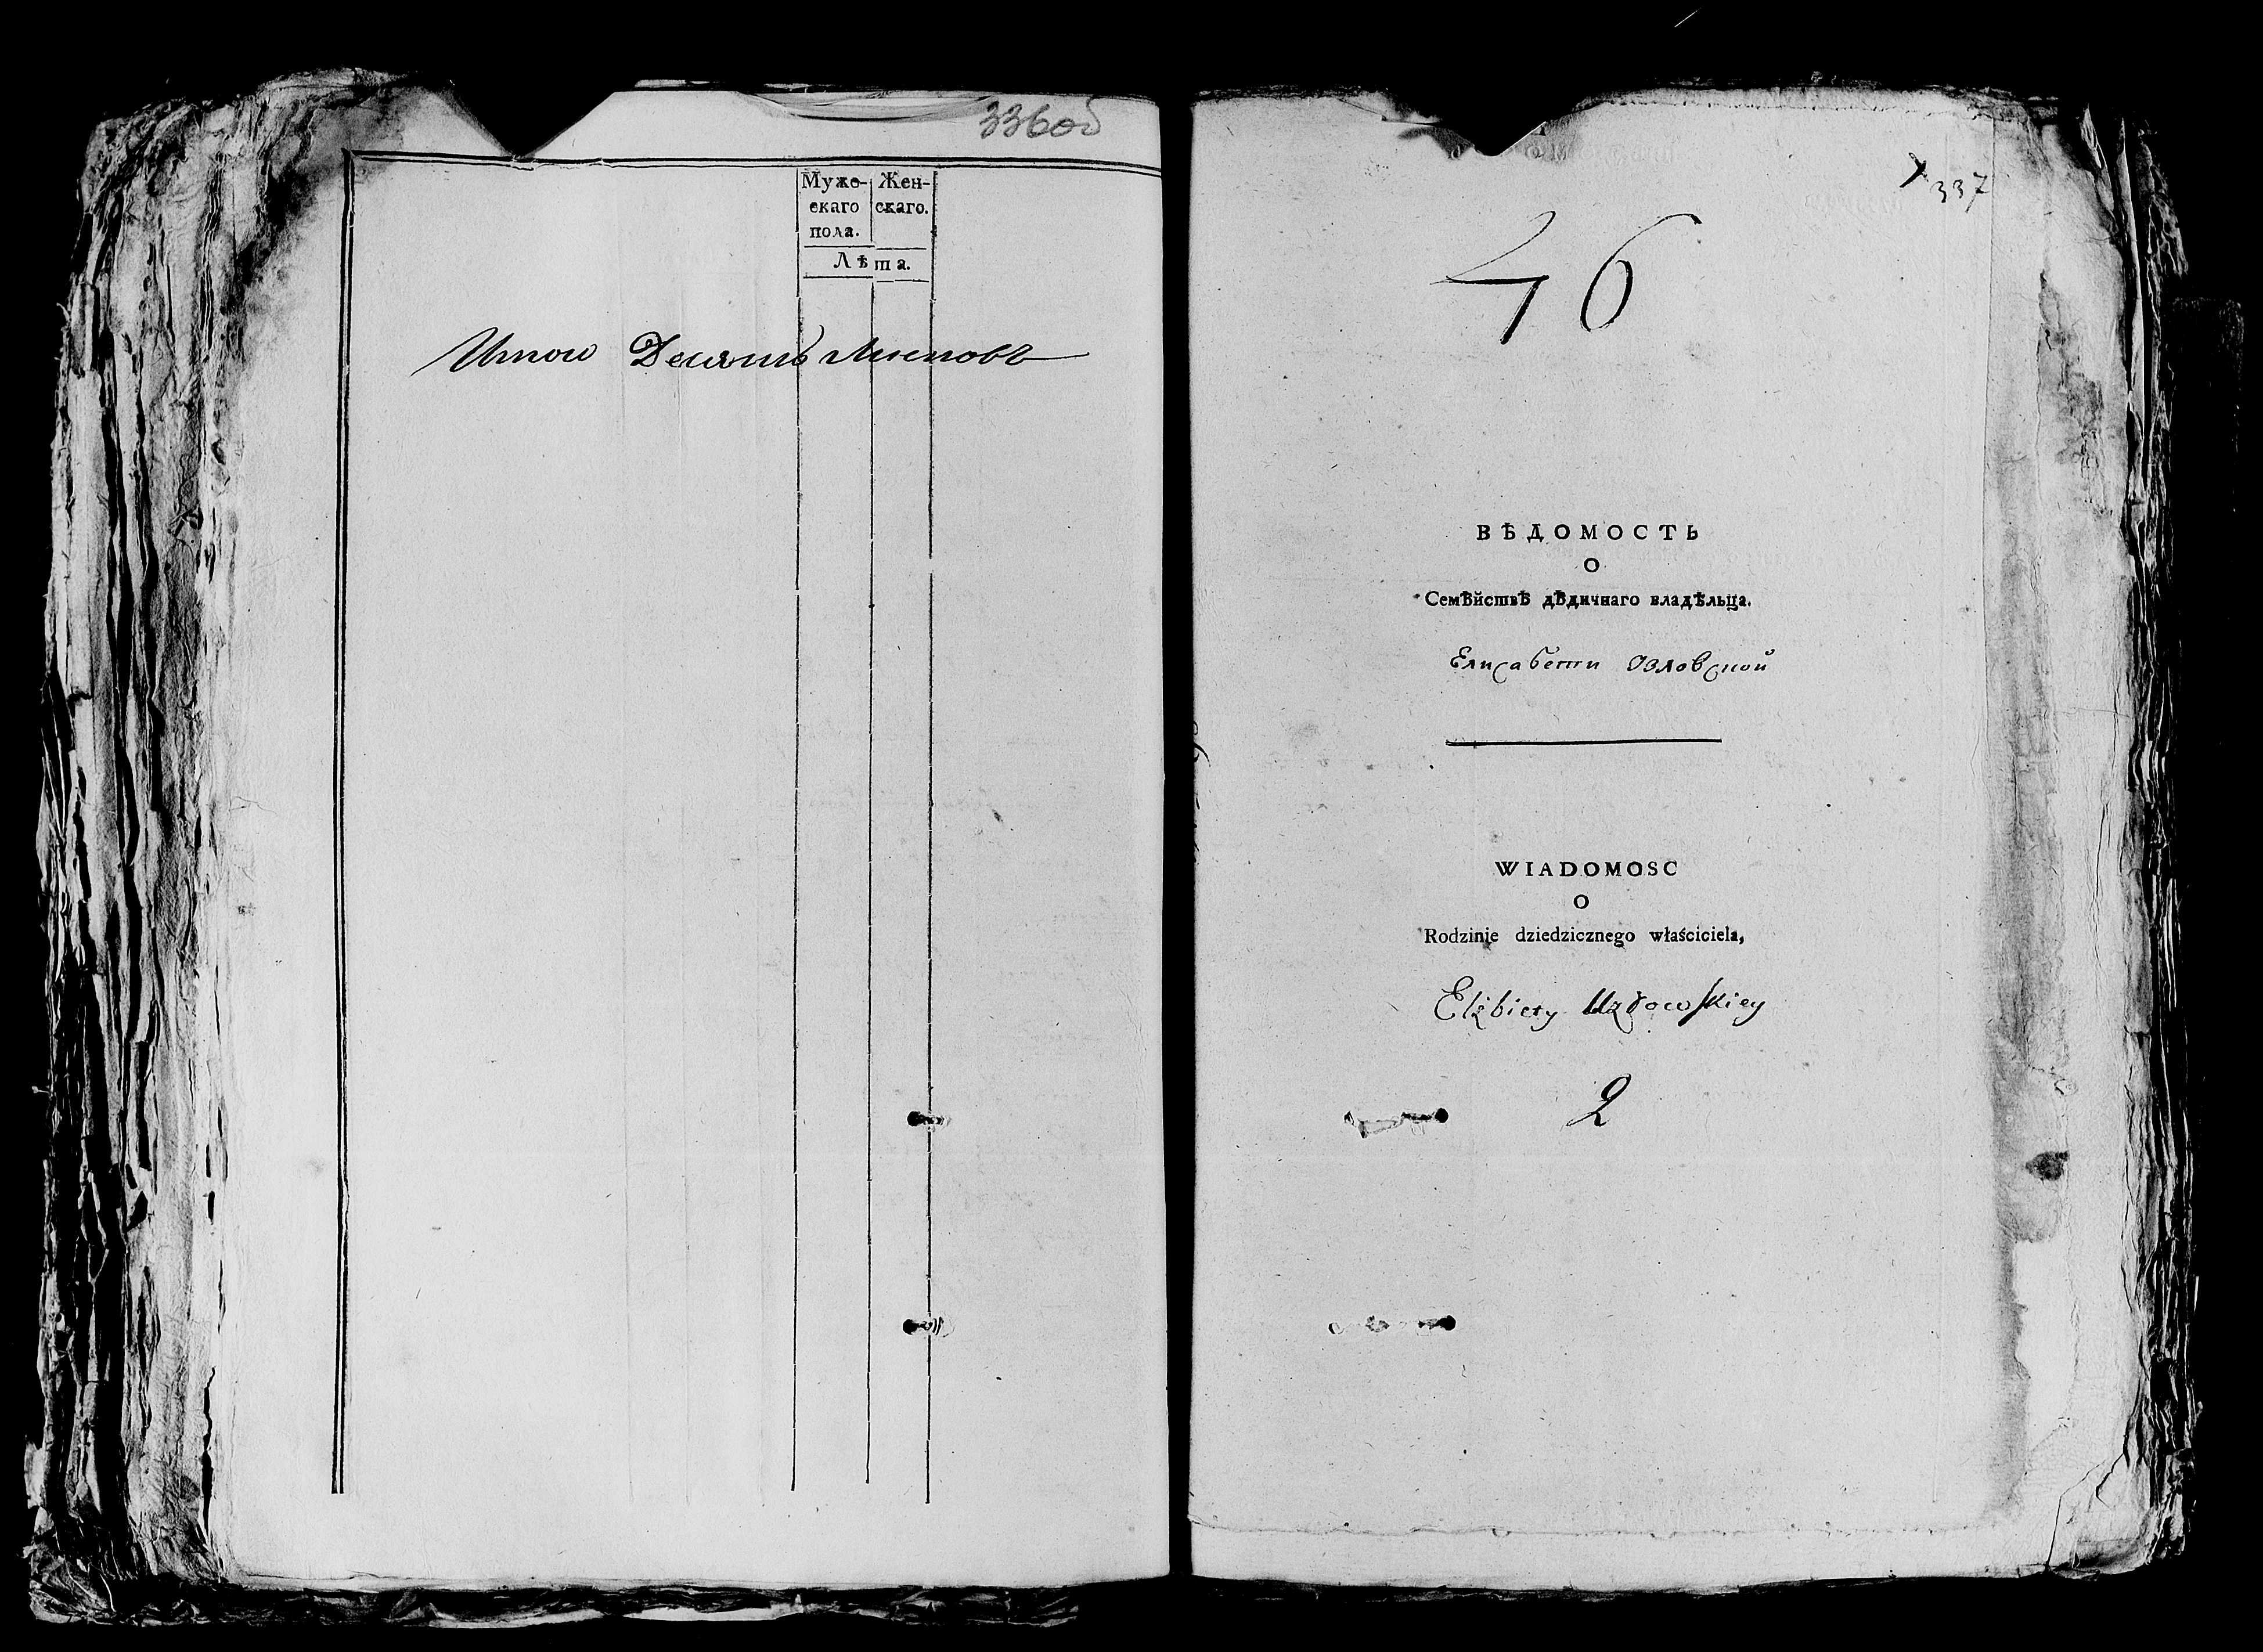 336об
Мужс- Жен-
скаго скаго.
пола.
Лѣта.
Итого Десять Листовъ
337
46
ВѢДОМОСТЬ
О
Семѣйствѣ дѣдичнаго владѣльца.
Елисабети Озловской
WIADOMOSC
O
Rodzinie dziedzicznego właściciela,
Elżbiety
2